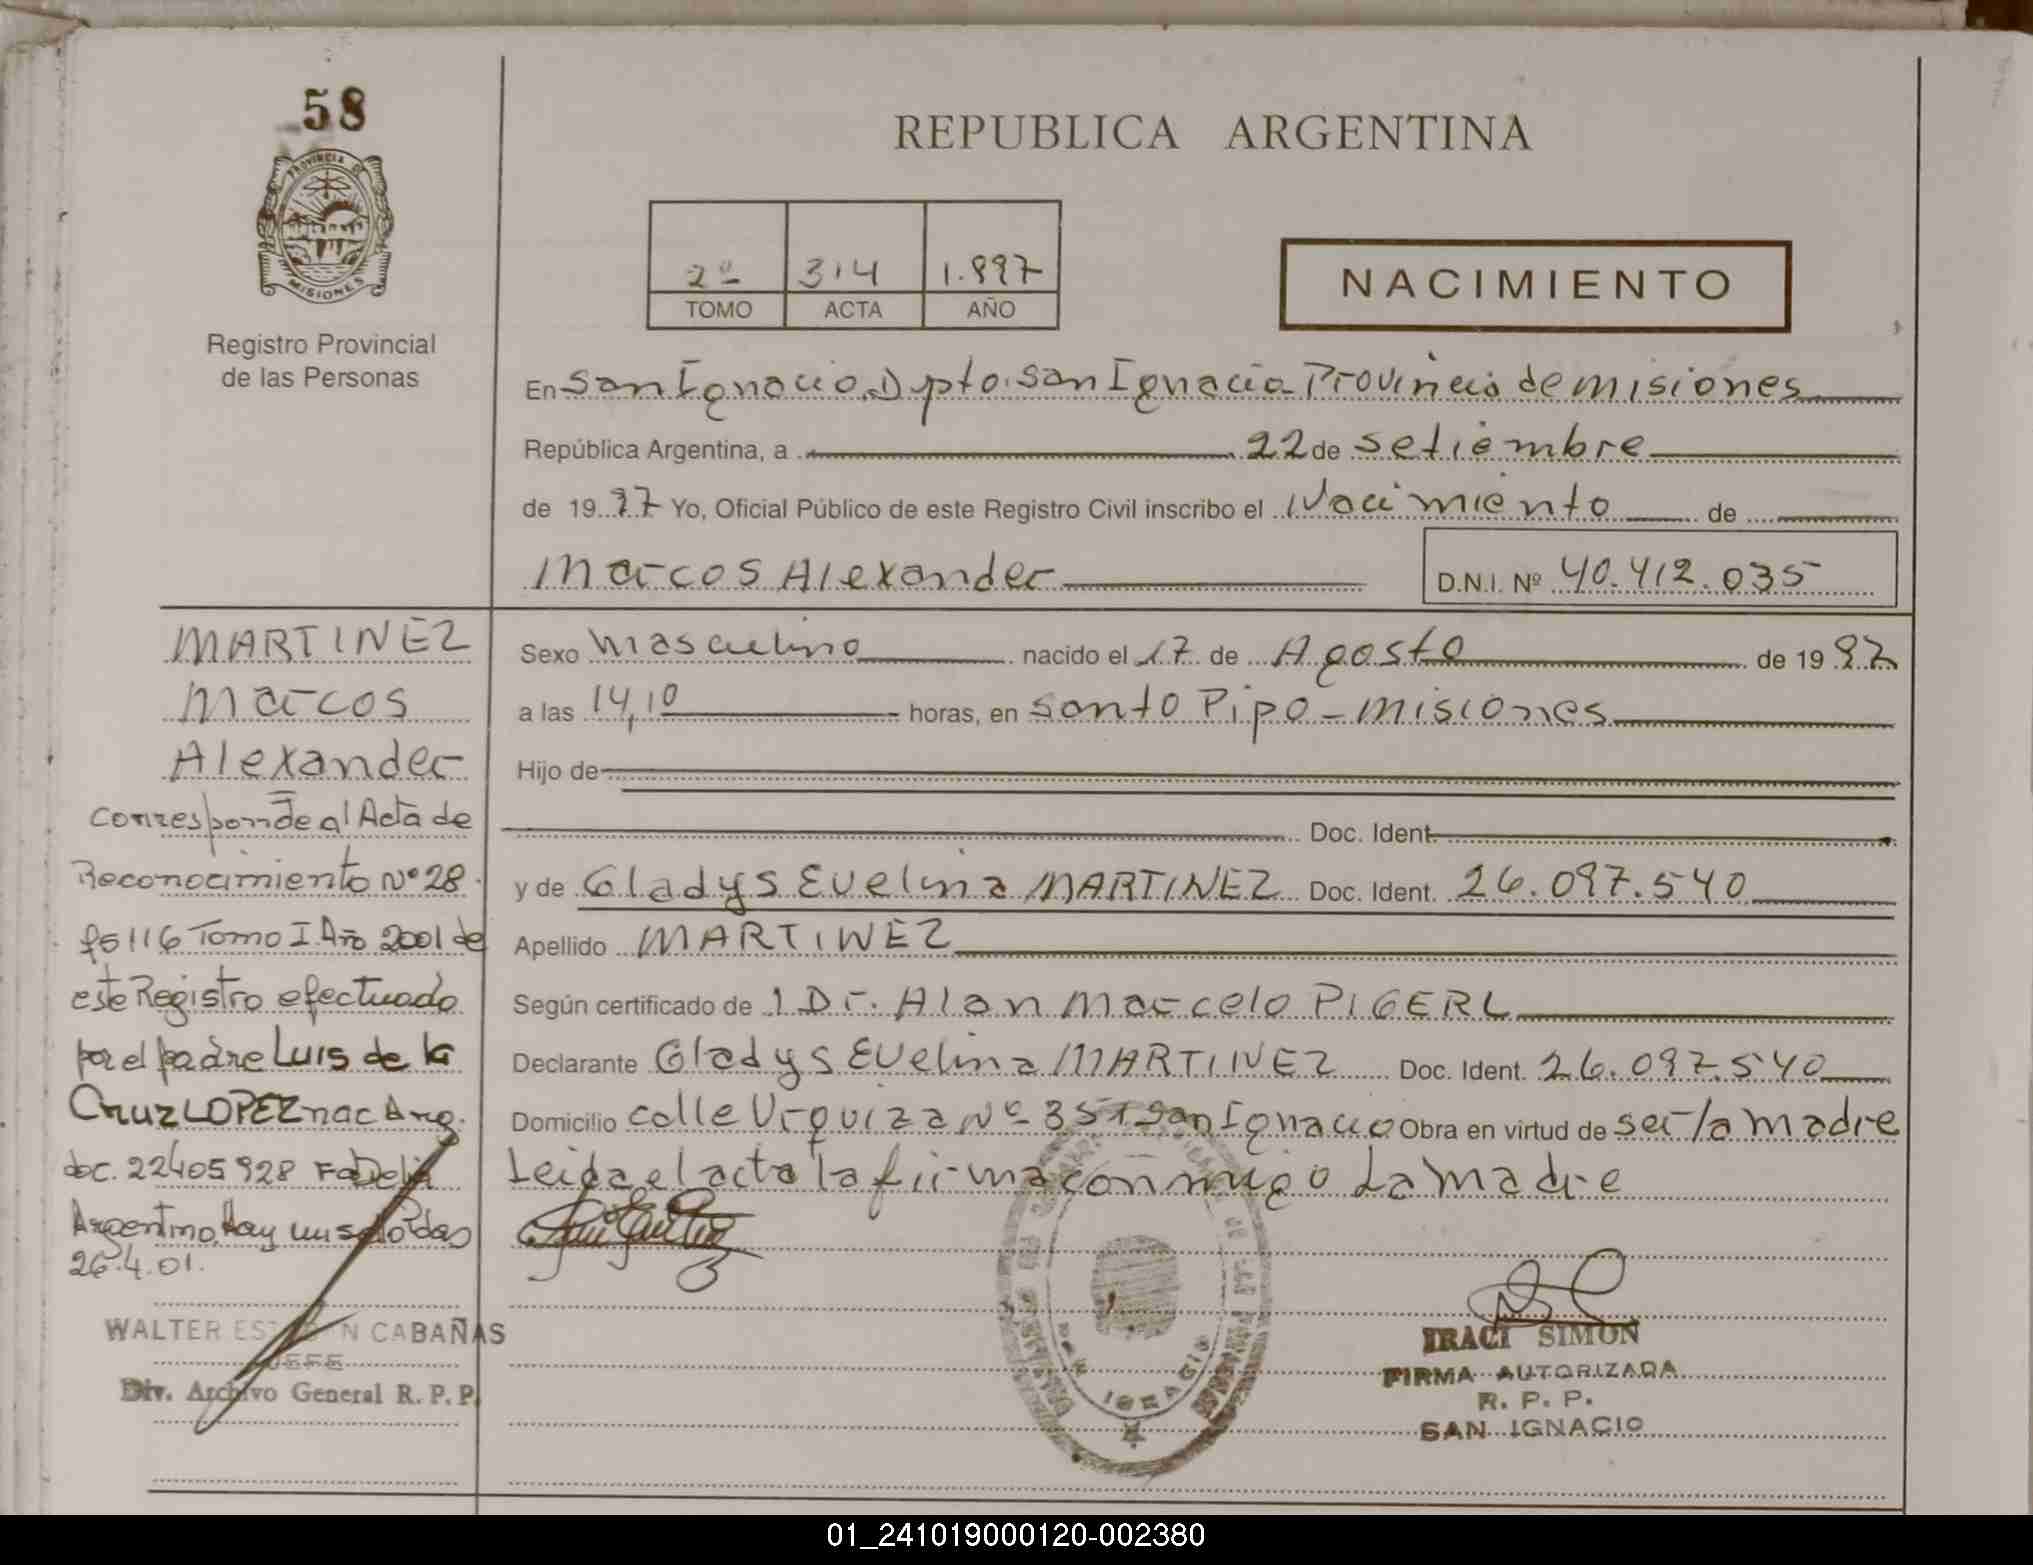 58
PROVINCIA DE
MISIONES
Registro Provincial
de las Personas
REPUBLICA ARGENTINA
2º 314 1.997
TOMO ACTA AÑO
NACIMIENTO
En San Ignacio, Dpto. San Ignacio Provincia de misiones
República Argentina, a 22 de setiembre
de 1997 Yo, Oficial Público de este Registro Civil inscribo el Nacimiento de
Marcos Alexander
D.N.I. Nº 40.412.035
MARTINEZ
Marcos
Alexander
Corresponde al Acta de
Reconocimiento Nº 28
fº 116 Tomo I. Año 2001 de
este Registro efectuado
por el padre Luis de la
Cruz LOPEZ nac Arg.
doc. 22405928
Argentino. Hay un
26.4.01.
WALTER CABAÑAS
JEFE
Div. Archivo General R. P. P.
Sexo masculino nacido el 17 de Agosto de 1997
a las 14,10 horas, en Santo Pipo - misiones
Hijo de
Doc. Ident.
y de Gladys Evelina MARTINEZ Doc. Ident. 26.097.540
Apellido MARTINEZ
Según certificado de l Dr. Alan Marcelo PIGERL
Declarante Gladys Evelina MARTINEZ Doc. Ident. 26.097.540
Domicilio calle Urquiza Nº 351 San Ignacio Obra en virtud de ser la madre
Leida el acta la firma conmigo La madre
SAN IGNACIO
IRACI SIMON
FIRMA AUTORIZADA
R. P. P.
SAN IGNACIO
01_241019000120-002380